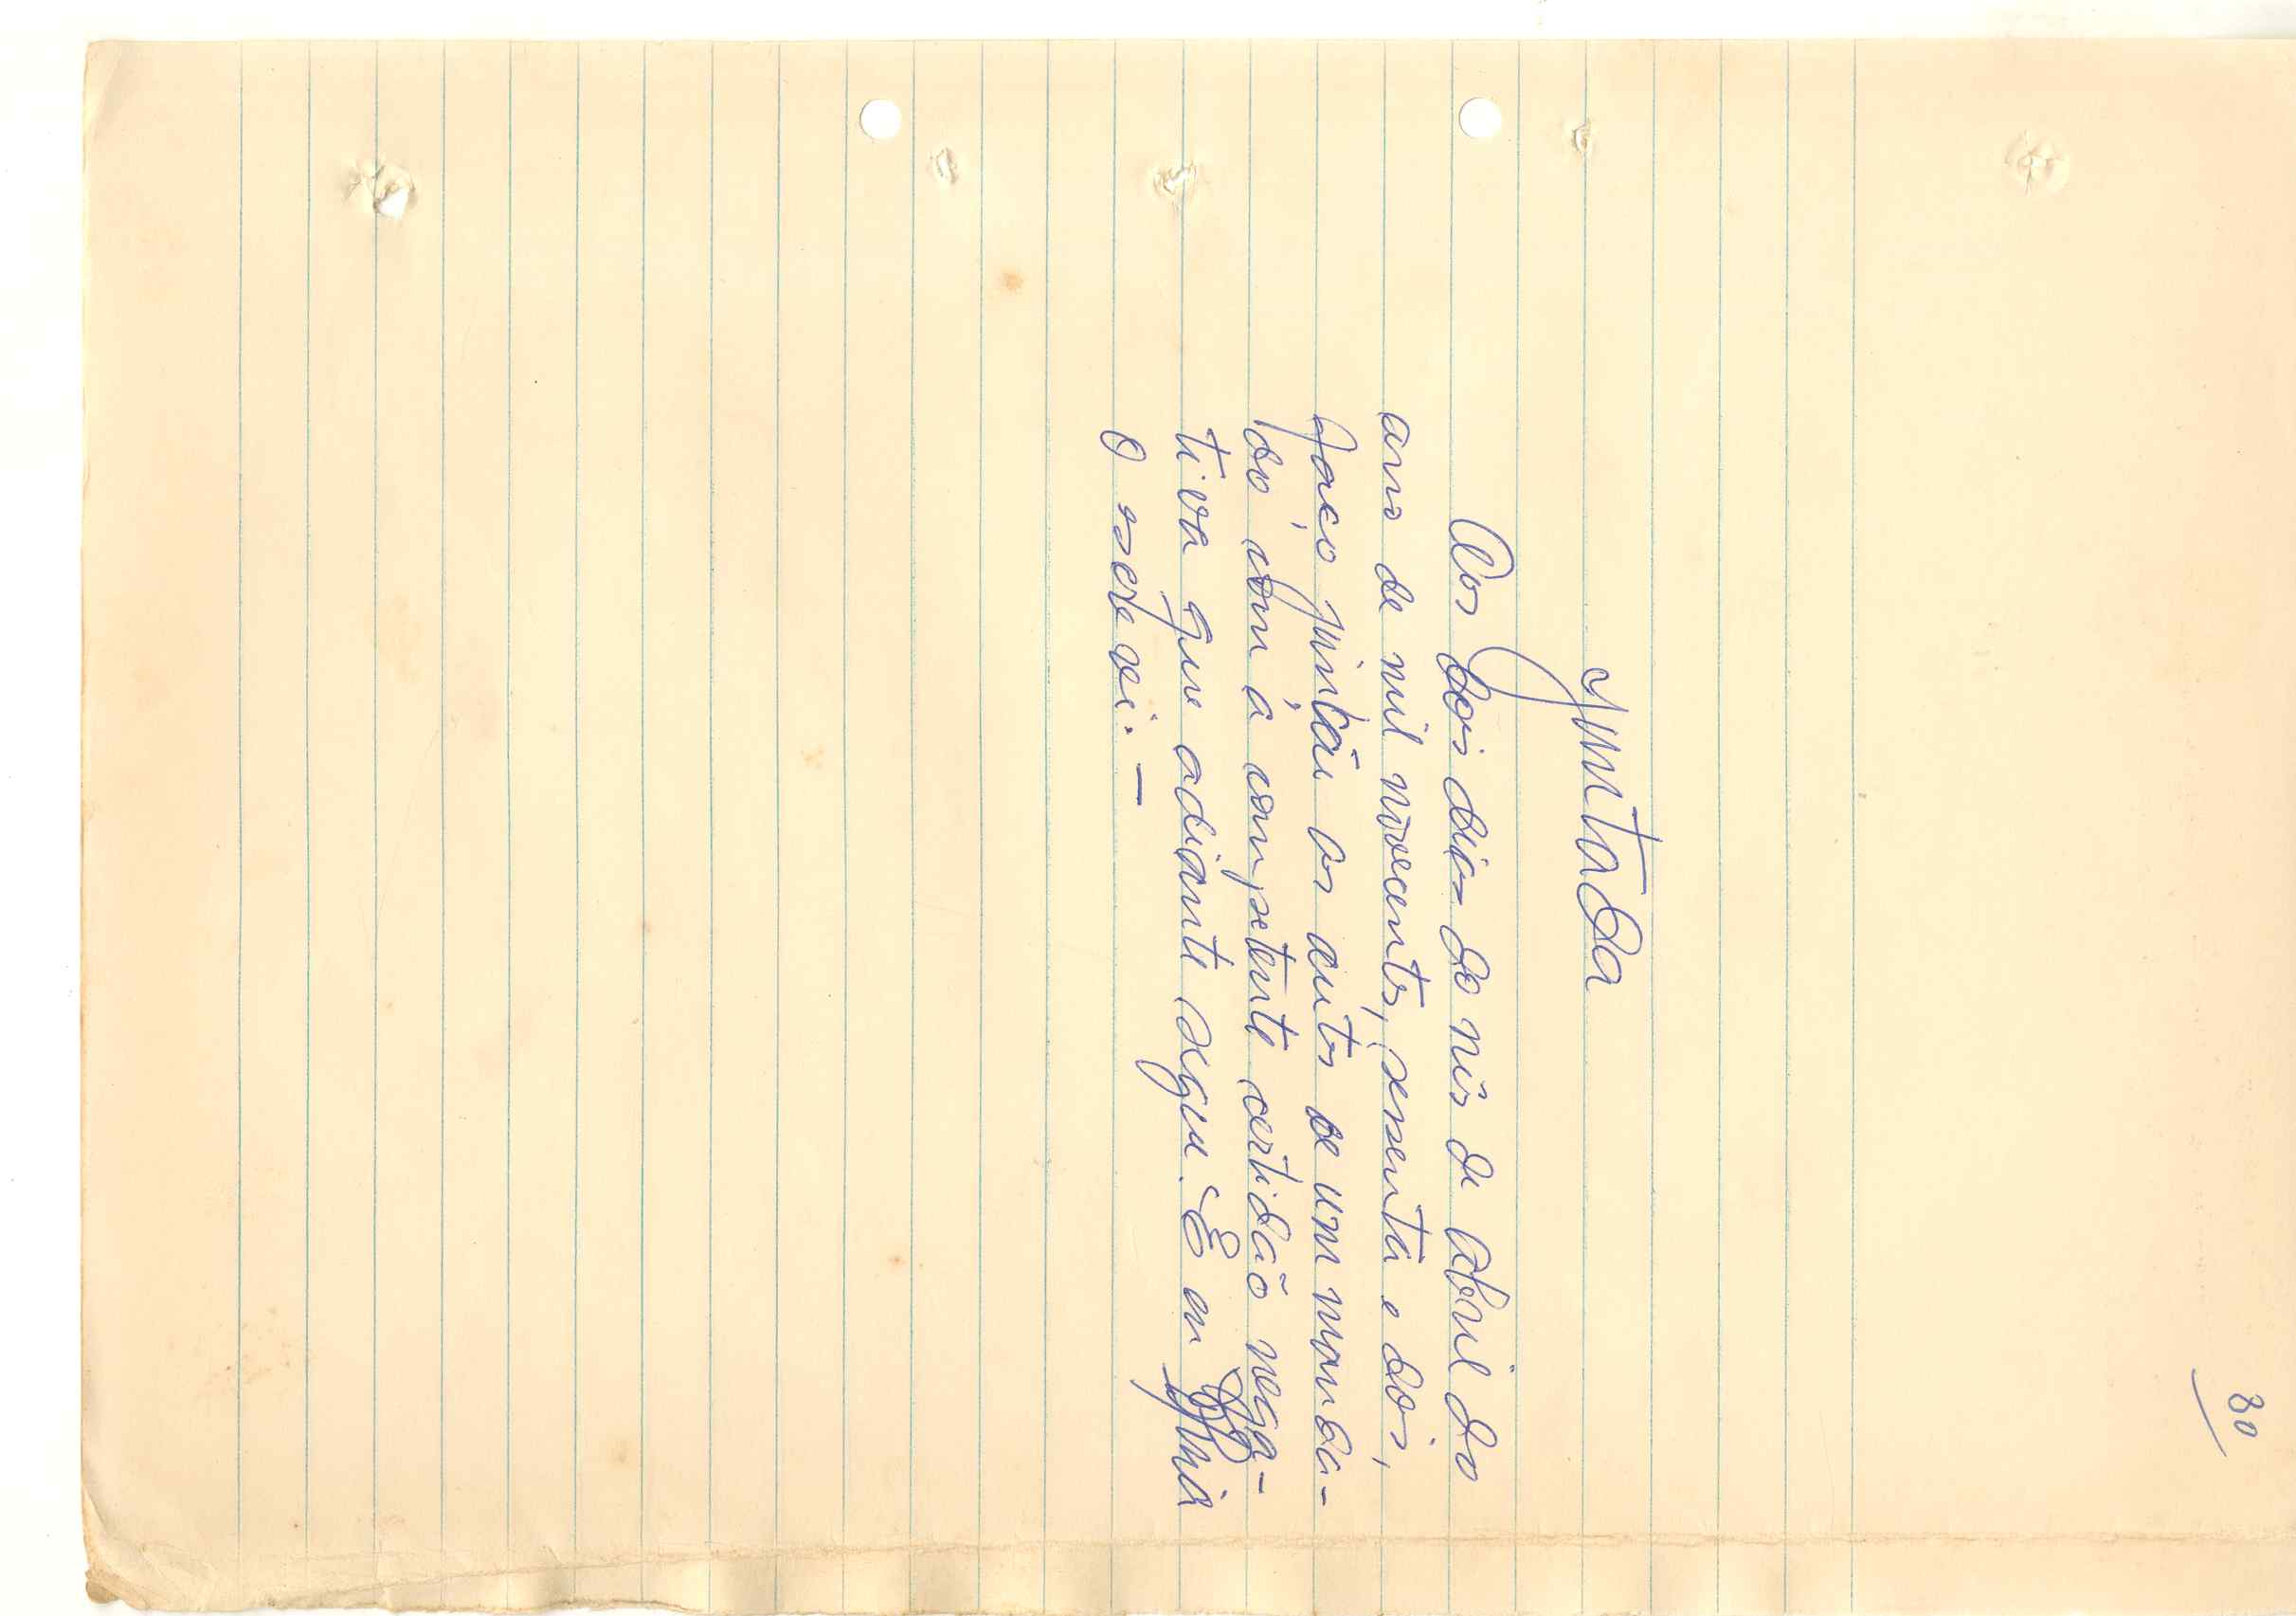 80
Juntada
Aos dois dias do mês de Abril do
ano de mil novecentos, sessenta e dois,
faço juntáu os autos de um manda-
do, com á competente certidão nega-
tiva que adiante segue. E eu
O escrevi. —